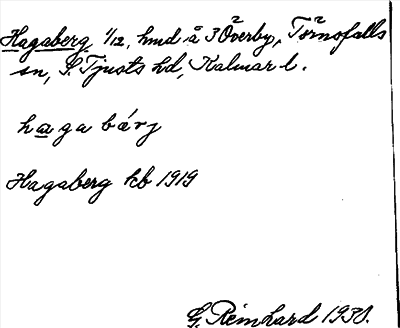 Hagaberg, 1/12, hmd å 3 Överby, Törnsfalls
sn, S. Tjusts hd, Kalmar l.
haga bárj
Hagaberg kb 1919
G. Reinhard 1930.